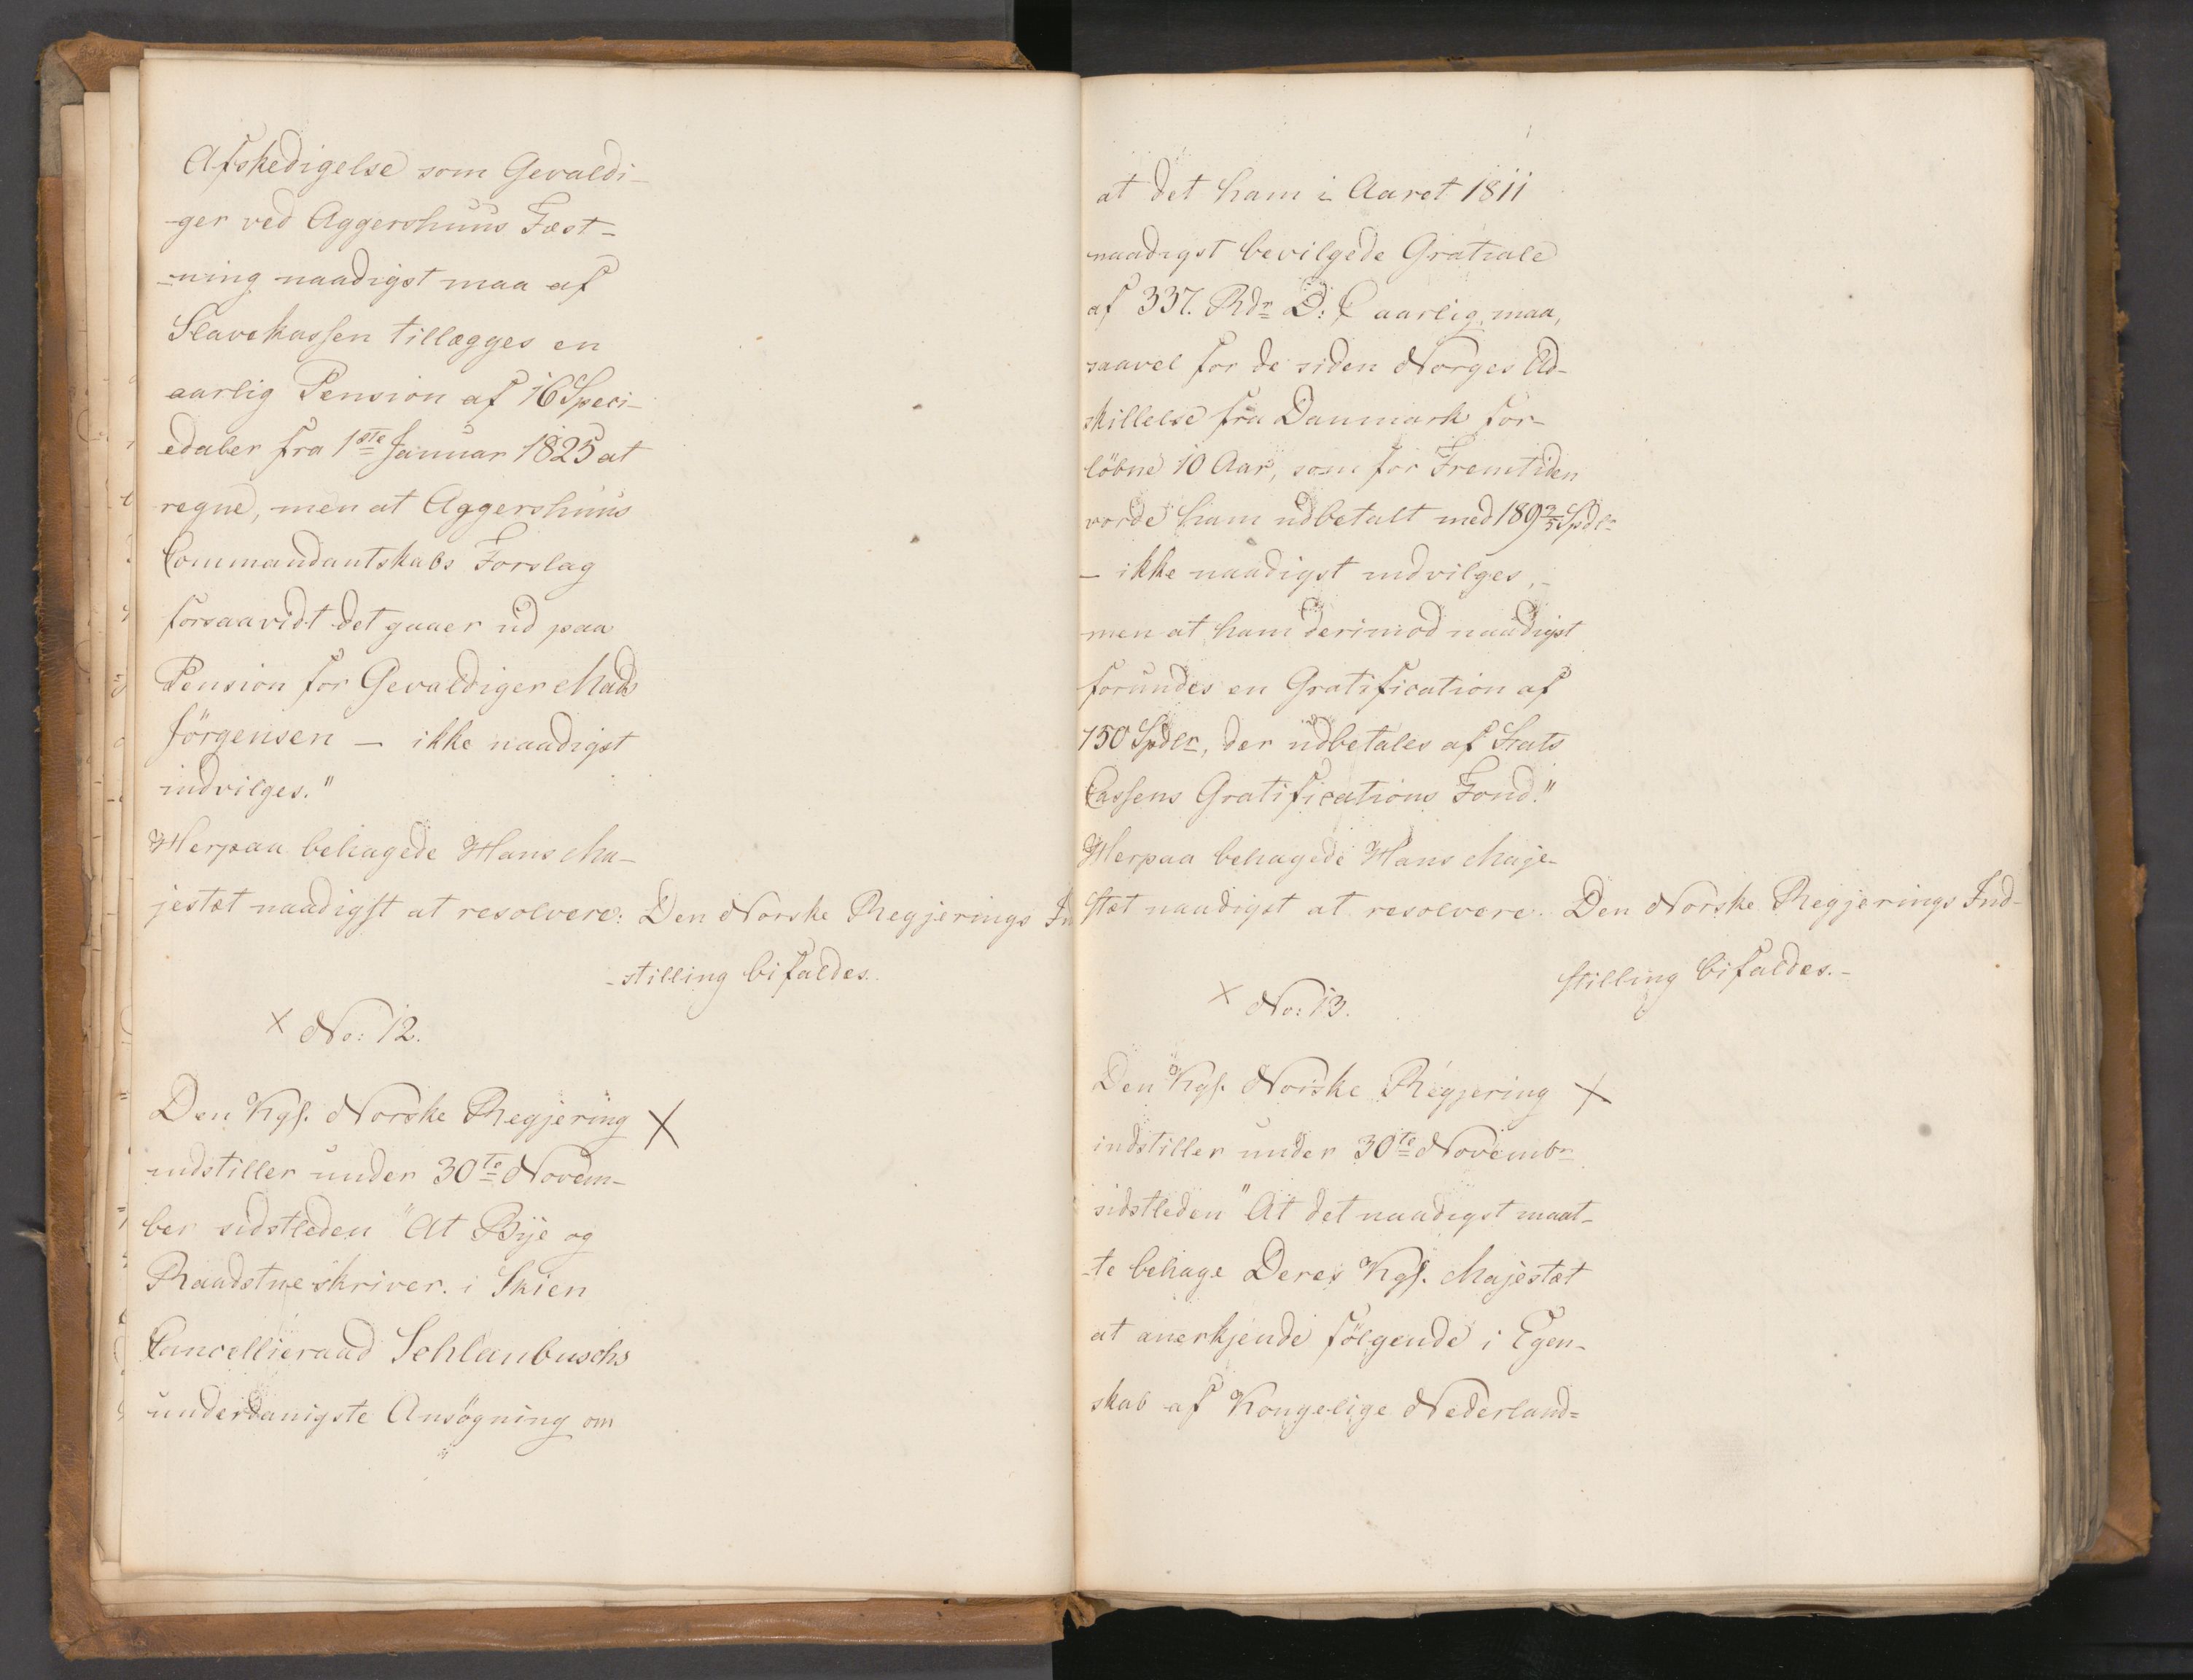 Afskedigelse som Gevaldi-
-ger ved Aggershuus Fæst-
-ning naadigst maa af
Slavekassen tillægges en
aarlig Pension af 16 Speci-
edaler fra 1ste Januar 1825 at
regne, men at Aggershuus
Commandantskabs Forslag
forsaavidt det gaaer ud paa
Pension for Gevaldiger Mads
Jörgensen - ikke naadigst
indvilges."
Herpaa behagede Hans Ma-
jestæt naadigst at resolvere: Den Norske Regjerings In
-stilling bifaldes.
× No: 12.
Den Kgl. Norske Regjering ×
indstiller under 30te Novem-
ber sidstleden "At Bye og
Raadstueskriver i Skien
Cancellieraad Schlanbuschs
underdanigste Ansögning om
at det ham i Aaret 1811
naadigst bevilgede Gratiale
af 337. Rdr D: C aarlig, maa,
saavel for de siden Norges Ad-
skillelse fra Danmark for-
löbne 10 Aar, som for Fremtiden
vorde ham udbetalt med 189 3/5 Spdlr
- ikke naadigst indvilges, -
men at ham derimod naadigst
forundes en Gratification af
150 Spdlr, der udbetales af Stats
Cassens Gratifications Fond."
Herpaa behagede Hans Maje-
stæt naadigst at resolvere. Den Norske Regjerings Ind-
stilling bifaldes. -
× No: 13.
Den Kgl. Norske Regjering ×
indstiller under 30te Novembr
sidstleden "At det naadigst maat-
-te behage Deres Kgl. Majestæt
at anerkjende fölgende i Egen-
skab af Kongelige Nederland=